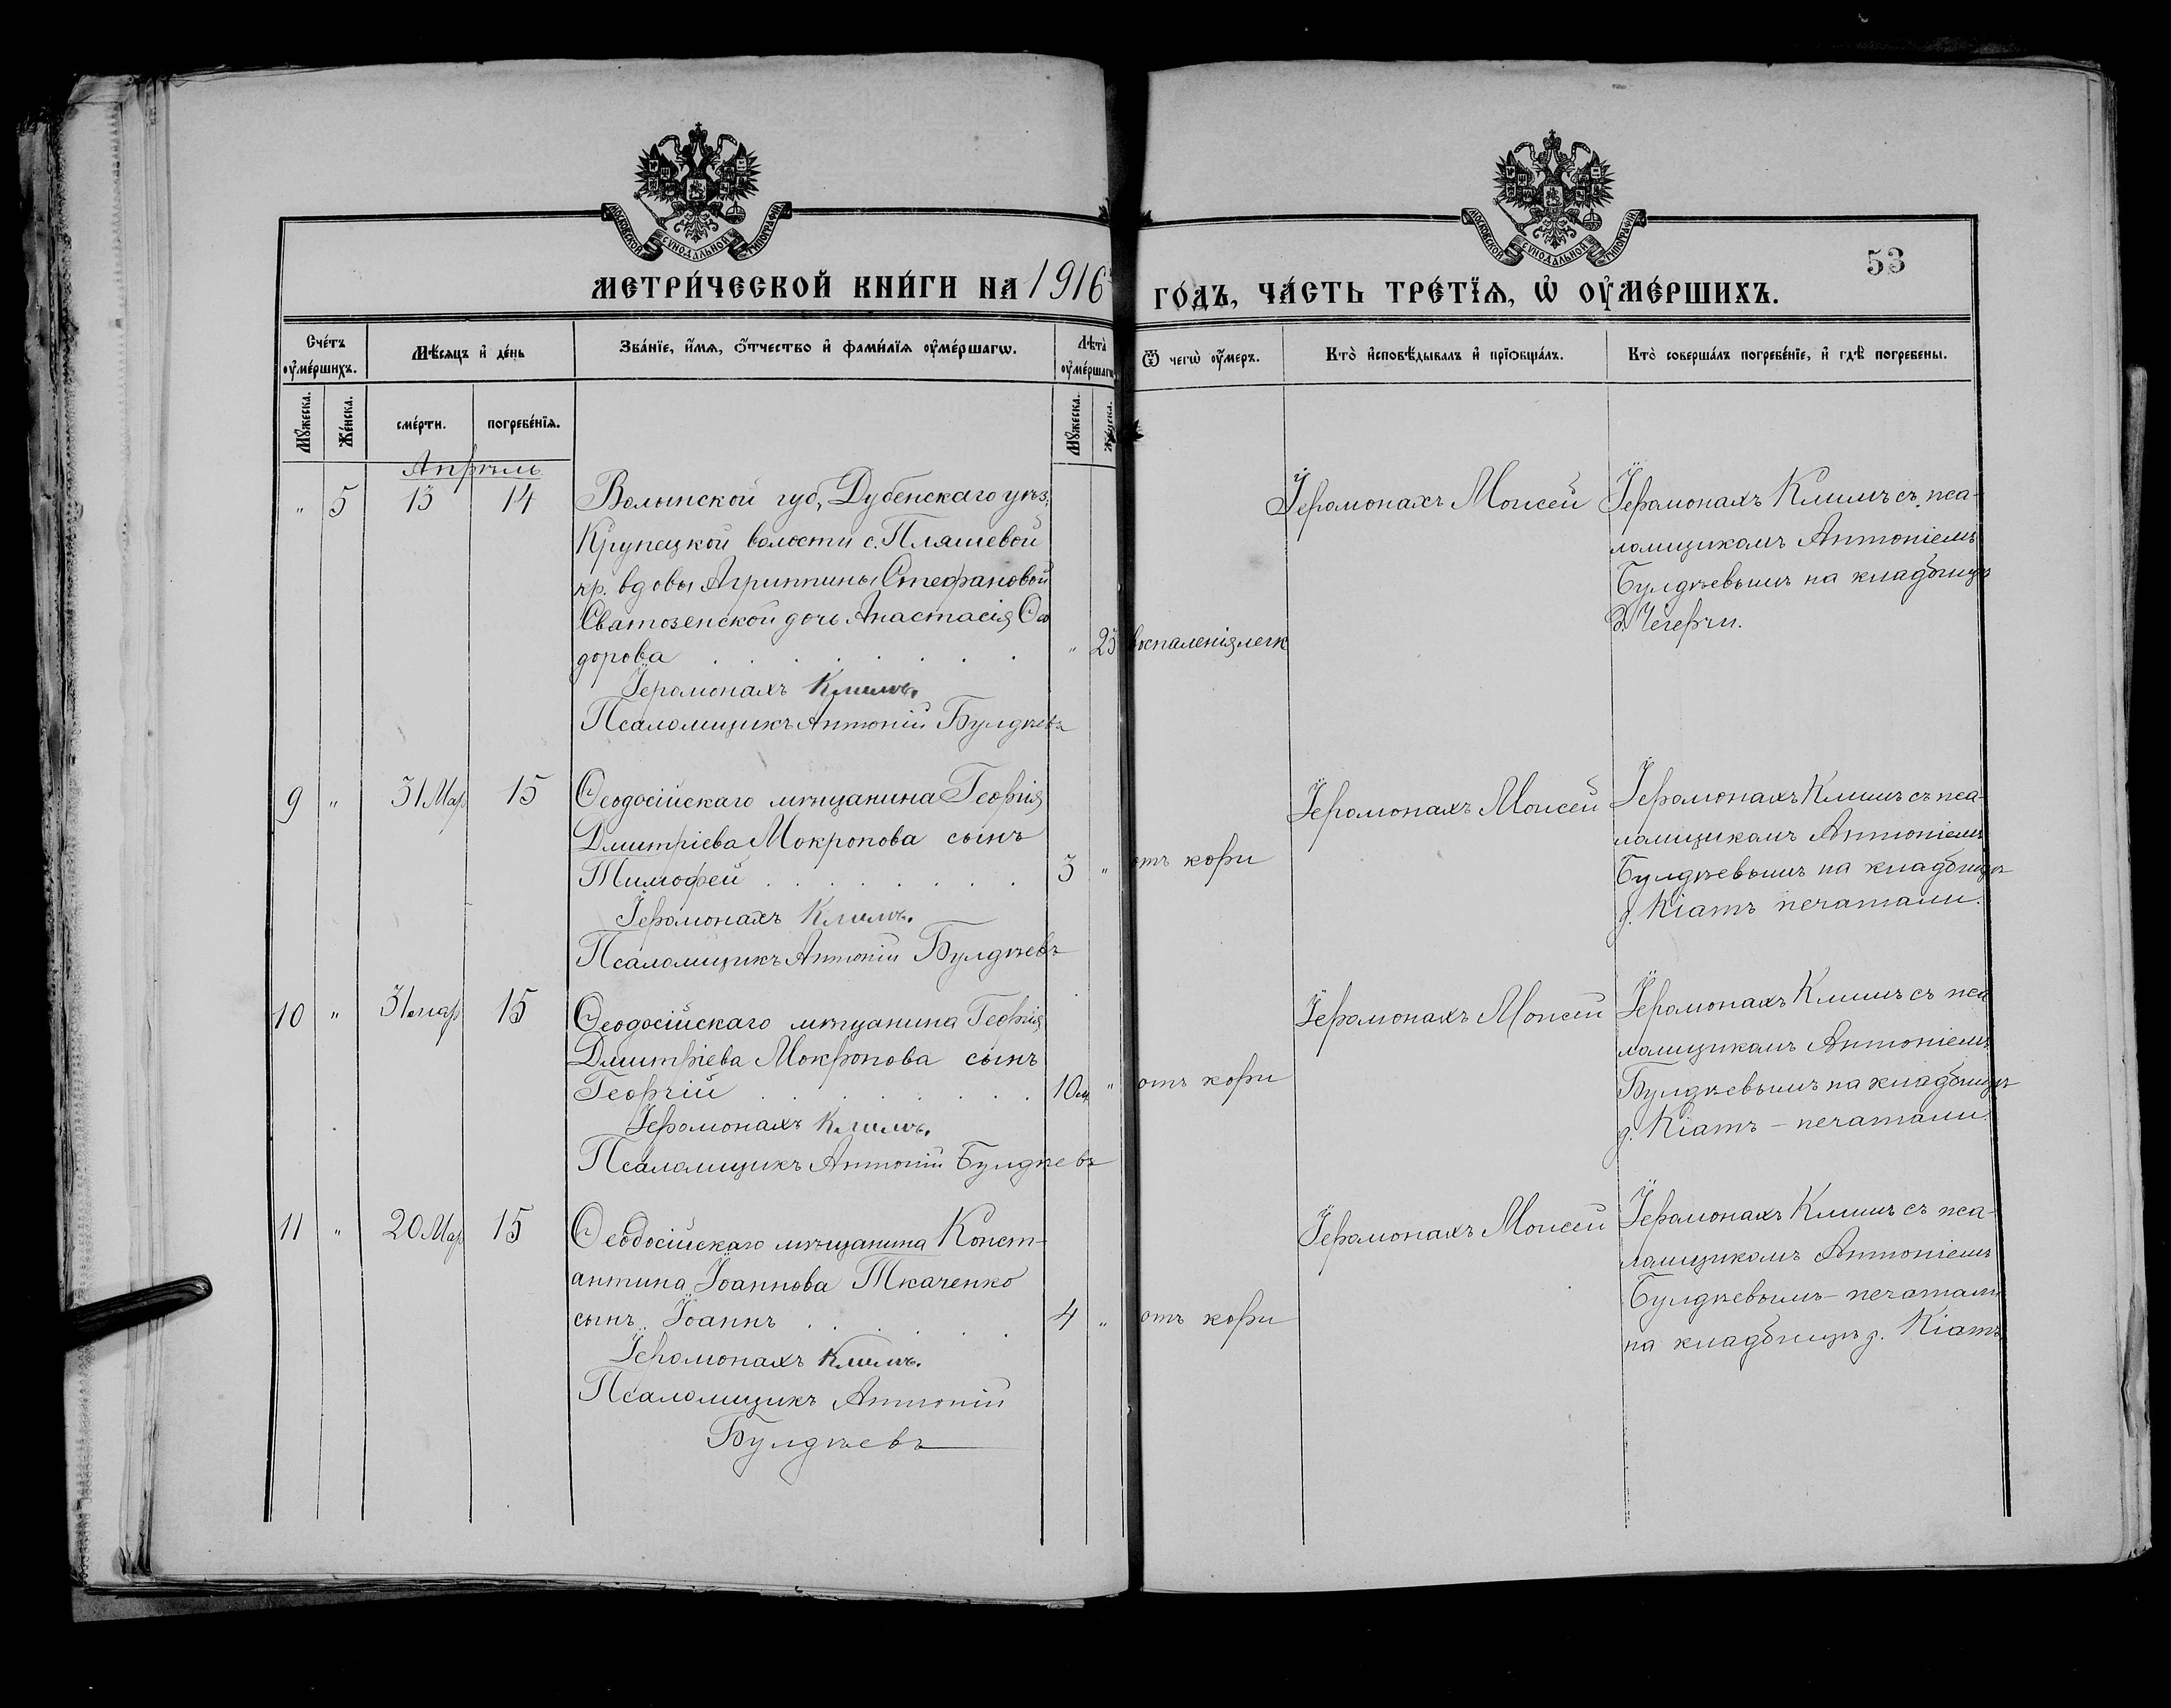 МОСКОВСКОЙ СѴНОДАЛЬНОЙ ТИПОГРАФІИ
МЕТРИ́ЧЕСКОЙ КНИ́ГИ НА 1916й
МОСКОВСКОЙ СѴНОДАЛЬНОЙ ТИПОГРАФІИ
53
ГО́ДЪ, ЧА́СТЬ ТРЕ́ТЇѦ, Ѡ҆ ОУ҆МЕ́РШИХЪ.
Сче́тъ оу҆ме́ршихъ.
Мѣ́сяцъ и҆ де́нь
Зва́нїе, и҆́мѧ, ѻ҆́тчество и҆ фами́лїѧ оу҆ме́ршагѡ.
Лѣта̀ оу҆ме́ршагѡ
Ѿ чегѡ̀ оу҆́меръ.
Кто̀ и҆сповѣ́дывалъ и҆ прїѻбща́лъ.
Кто̀ соверша́лъ погребе́нїе, и҆ гдѣ̀ погребены.
Мꙋ́жеска.
Же́нска.
сме́рти.
погребе́нїѧ.
Мꙋ́жеска.
Же́нска.
Апрѣль
" 5 13 14
Волынской губ, Дубенскаго уѣз.
Крупецкой волости с. Пляшевой
кр. вдовы Агриппины Стефановой
Сватозенской дочь Анастасія Ѳео
дорова
Іеромонахъ Климъ.
Псаломщикъ Антоній Булдѣевъ
" 23
воспаленія легк
Іеромонахъ Моисей
Іеромонахъ Климъ съ пса-
ломщикомъ Антоніемъ
Булдѣевымъ на кладбищѣ
д. Чегерчи.
9 " 31 Мар 15
Ѳеодосійскаго мѣщанина Георгія
Дмитріева Мокропова сынъ
Тимофей
Іеромонахъ Климъ.
Псаломщикъ Антоній Булдѣевъ
3 "
отъ кори
Іеромонахъ Моисей
Іеромонахъ Климъ съ пса-
ломщикомъ Антоніемъ
Булдѣевымъ на кладбищѣ
д. Кіатъ печатали.
10 " 31 мар 15
Ѳеодосійскаго мѣщанина Георгія
Дмитріева Мокропова сынъ
Георгій
Іеромонахъ Климъ.
Псаломщикъ Антоній Булдѣевъ
10 м "
отъ кори
Іеромонахъ Моисей
Іеромонахъ Климъ съ пса
ломщикомъ Антоніемъ
Булдѣевымъ на кладбищѣ
д. Кіатъ – печатали.
11 " 20 Мар 15
Ѳеодосійскаго мѣщанина Конст-
антина Іоаннова Ткаченко
сынъ Іоаннъ
Іеромонахъ Климъ.
Псаломщикъ Антоній
Булдѣевъ
4 "
отъ кори
Іеромонахъ Моисей
Іеромонахъ Климъ съ пса-
ломщикомъ Антоніемъ
Булдѣевымъ – печатали
на кладбищѣ д. Кіатъ